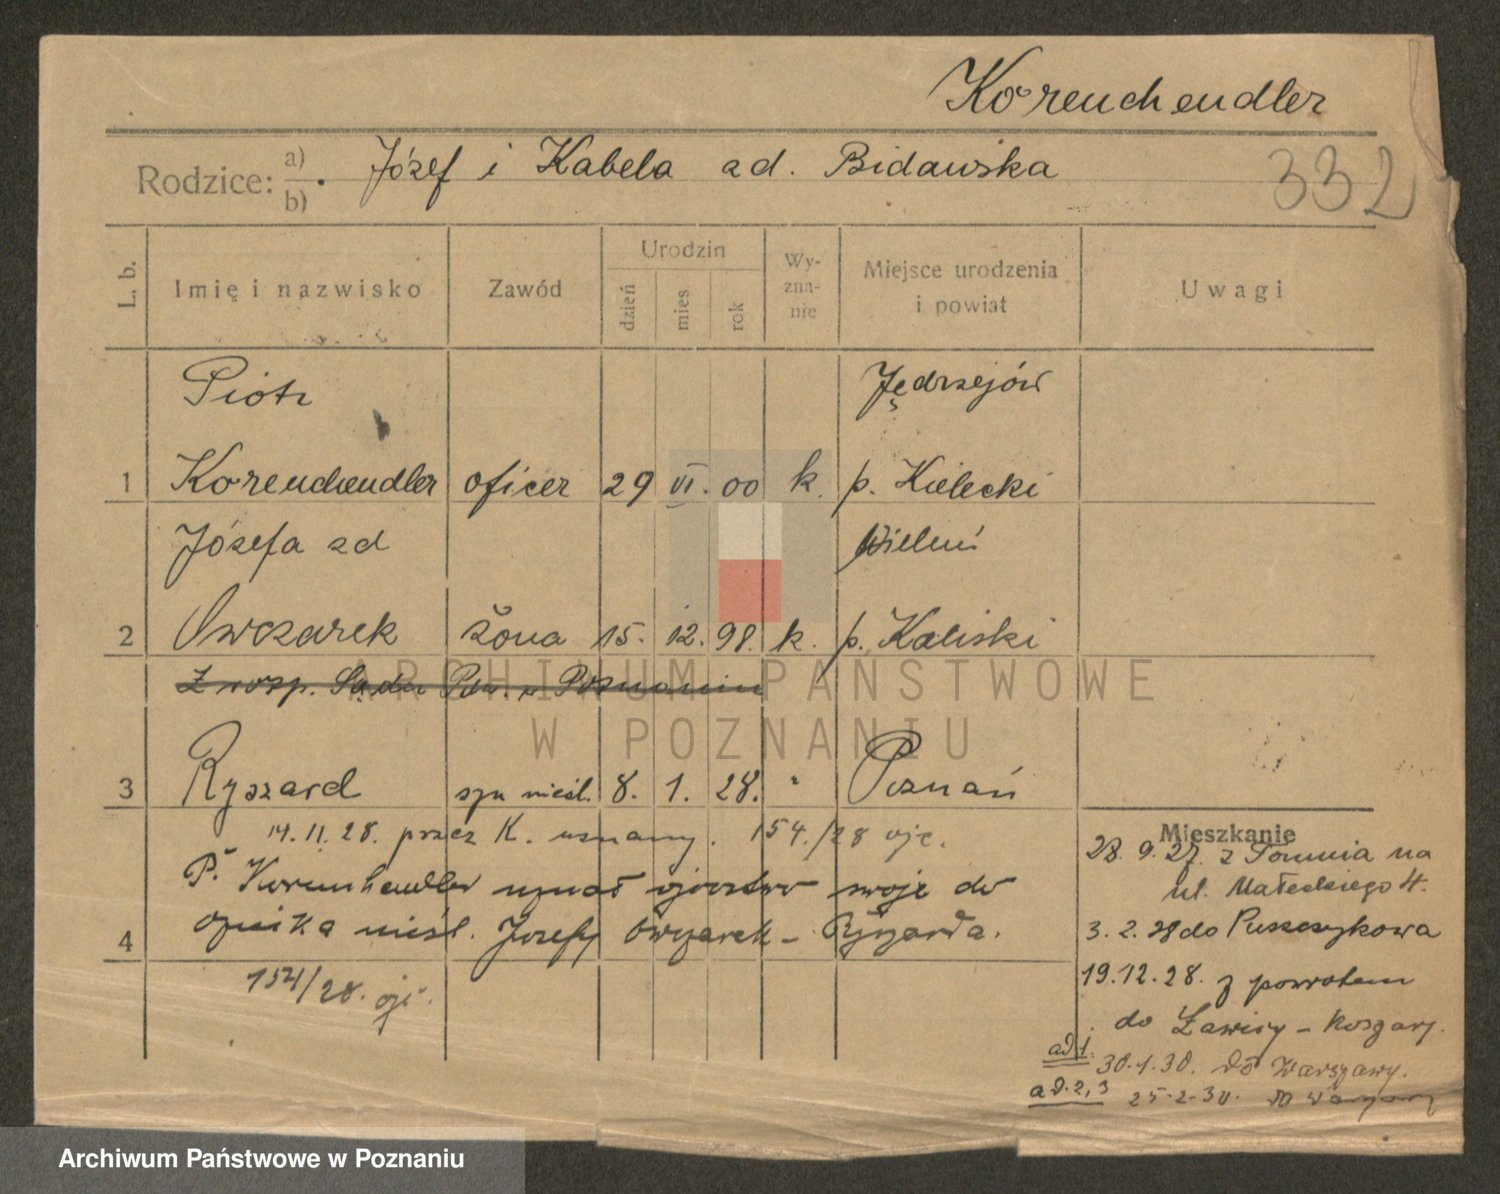 Korenchendler
Rodzice: a) b) Józef i Kabela zd. Bidawska
332
L. b. Imię i nazwisko Zawód Urodzin dzień mies. rok Wyznanie Miejsce urodzenia i powiat Uwagi
Piotr Jędrzejów
1 Korenchendler oficer 29 VI. 00 k. p. Kielecki
Józefa zd Wieluń
2 Owczarek żona 15. 12. 98. k. p. Kaliski
Z rozp. Sądu Pow. w Poznaniu
3 Ryszard syn nieśl. 8. 1. 28. " Poznań
14. 11. 28. przez K. uznany. 154./28 ojc.
P. Korenchendler uznał ojcostwo swoje do
4 opieka nieśl. Józefy Owczarek - Ryszarda.
154/28. ojc.
Mieszkanie
28. 9. 27. z Torunia na
ul. Małeckiego 4.
3. 2. 28 do Puszczykowa
19. 12. 28. z powrotem
do Ławicy - Koszary.
ad 1. 30. 1. 30. do Warszawy.
ad. 2, 3 25-2-30. do Warszawy
ARCHIWUM PAŃSTWOWE
W POZNANIU
Archiwum Państwowe w Poznaniu